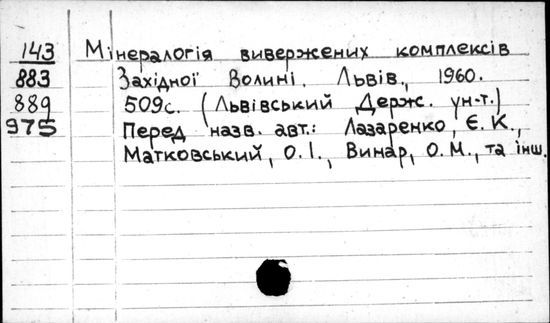 143 Мінералогія вивержених комплексів
883 Західної Волині. Львів, 1960.
889 509с. (Львівський Держ. ун-т.)
975 Перед назв. авт.: Лазаренко, Є. К.,
Матковський, О. І., Винар, О. М., та інш.